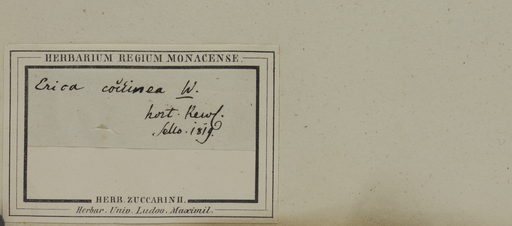 HERBARIUM REGIUM MONACENSE.
Erica coccinea W.
hort. Kew.
Sello. 1819.
HERB. ZUCCARINII.
Herbar. Univ. Ludov. Maximil.